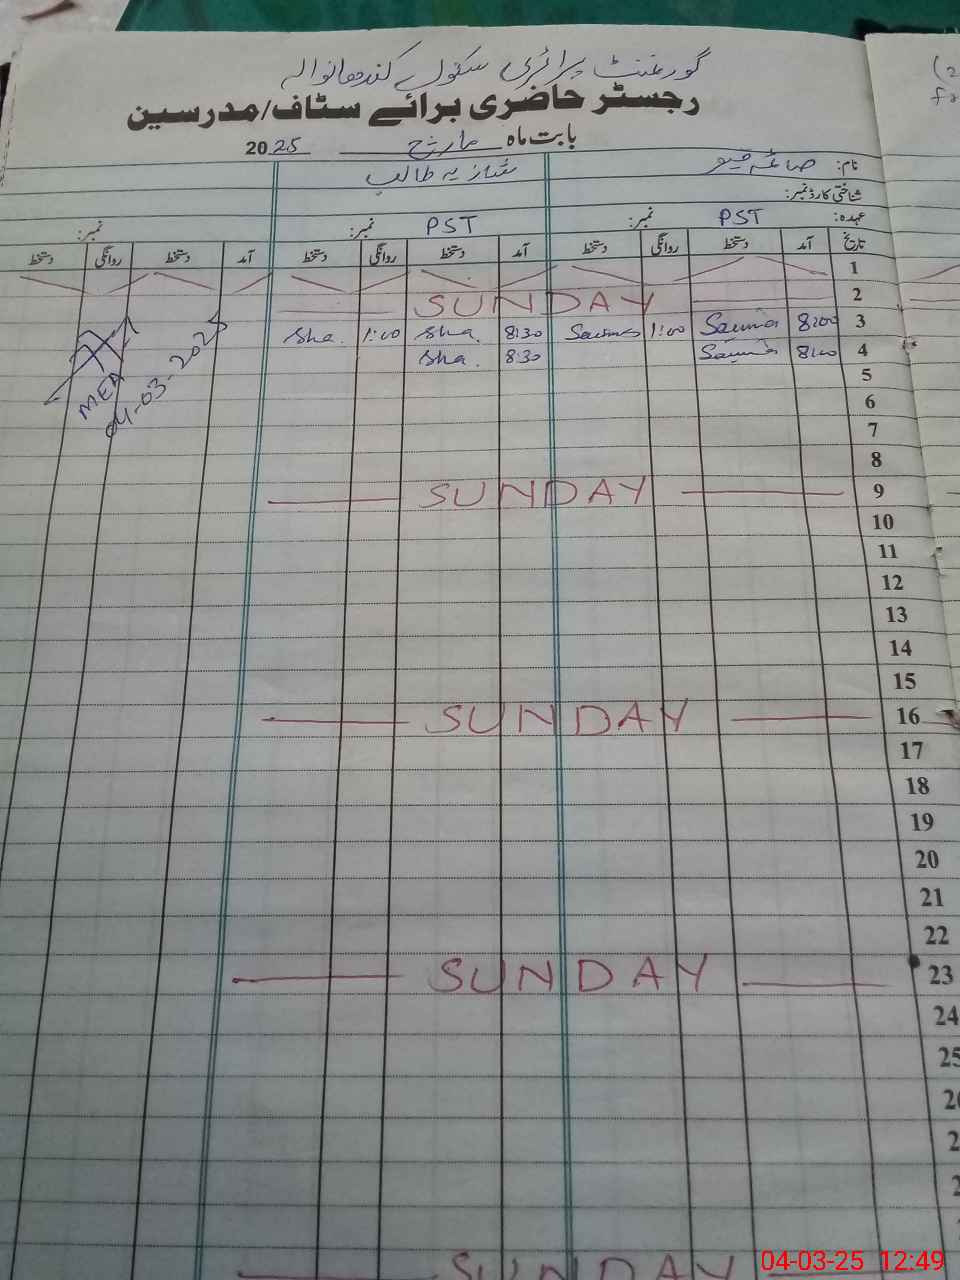 گورنمنٹ پرائمری سکول
رجسٹر حاضری برائے سٹاف/مدرسین
بابت ماہ مارچ 2025
نام: صائمہ شازیہ طالب
شناختی کارڈ نمبر:
عہدہ: PST نمبر: PST نمبر:
تاریخ آمد دستخط روانگی دستخط آمد دستخط روانگی دستخط آمد دستخط روانگی دستخط
1
2 SUNDAY
3 8:00 Saima 1:00 Saima 8:30 Sha. 1:00 Sha.
4 8:00 Saima 8:30 Sha.
MEA
04-03-202
5
6
7
8
9 SUNDAY
10
11
12
13
14
15
16 SUNDAY
17
18
19
20
21
22
23 SUNDAY
24
25
SUNDAY
04-03-25 12:49